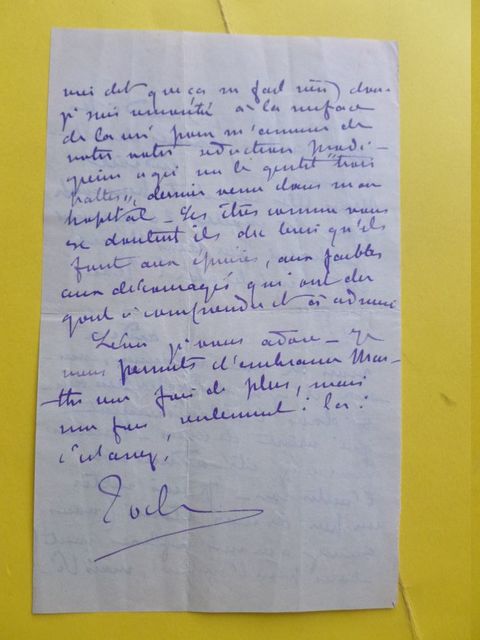 moi dit que ça ne fait rien, donc
je suis remonté à la surface
de la vie pour m'amuser de
votre séduction prodi-
qui a agi sur le gentil "trois
pattes", dernier venu dans mon
hopital - Les êtres comme vous
se doutent ils du bien qu'ils
font aux épuisés, aux faibles
aux découragés qui ont du
gout à comprendre et à admirer
je vous adore - je
vous permets d'embrasser Mar-
the une fois de plus, mais
une fois seulement : là :
c'est assez.